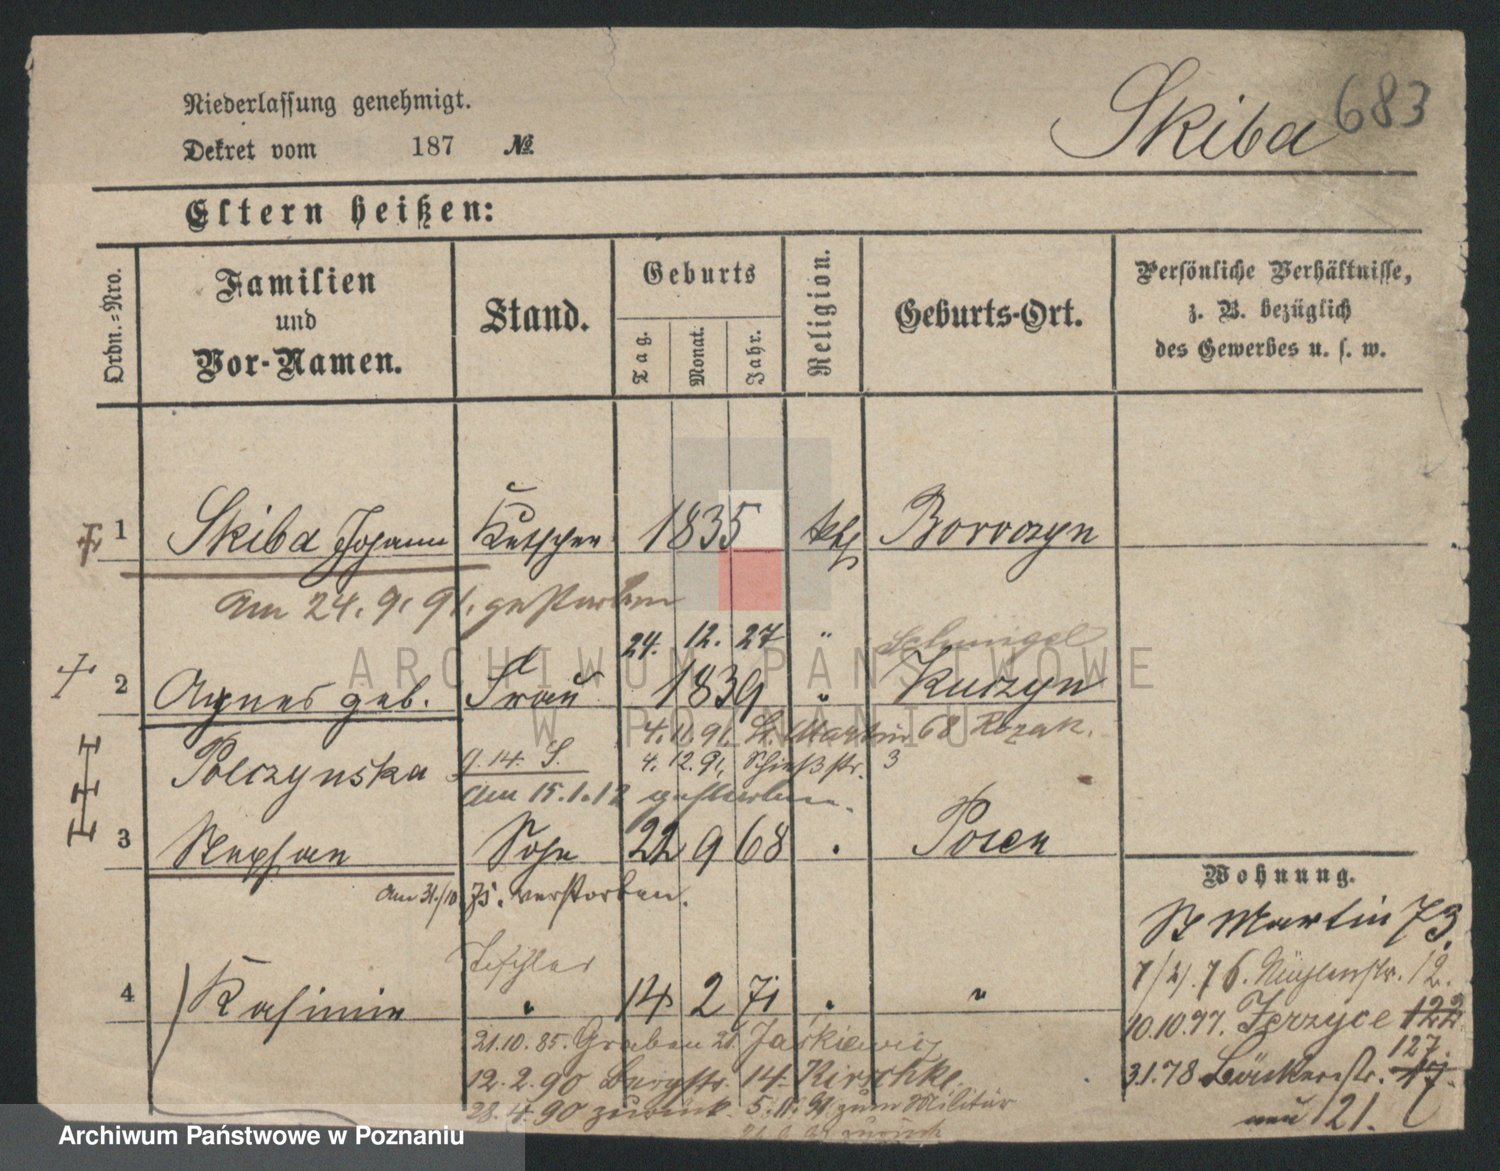 Niederlassung genehmigt.
Dekret vom 187 №
Skiba 683
Eltern heißen:
Ordn.-Nro.
Familien und Vor-Namen.
Stand.
Geburts
Tag.
Monat.
Jahr.
Religion.
Geburts-Ort.
Persönliche Verhältnisse, z. B. bezüglich des Gewerbes u. s. w.
1 Skiba Johann Kutscher 1835 kth Borvozyn
am 24. 9. 91. gestorben
24. 12. 27 "
2 Agnes geb. Frau 1839 " Kuczyn
4. 11. 91. St. Martin 68 Rozak.
Polczynska
4. 12. 91. Schießstr. 3
am 15. 1. 12 gestorben.
3 Stephan Sohn 22 9 68 Posen
am 31./10 75. verstorben.
Wohnung.
St Martin 73.
Tischler
7/2. 76. Mühlenstr. 12.
4 Kasimir " 14 2 71 " "
10.10.77. Jerzyce 122
127.
21.10.85. Graben 21. Jaskiewicz
3.1.78 Bäckerstr. 17.
12.2.90 Bergstr. 14. Kirschke.
neu 121.
28.4.90 zurück. 5.11.91 zum Militär
zurück
ARCHIWUM PAŃSTWOWE
W POZNANIU
Archiwum Państwowe w Poznaniu